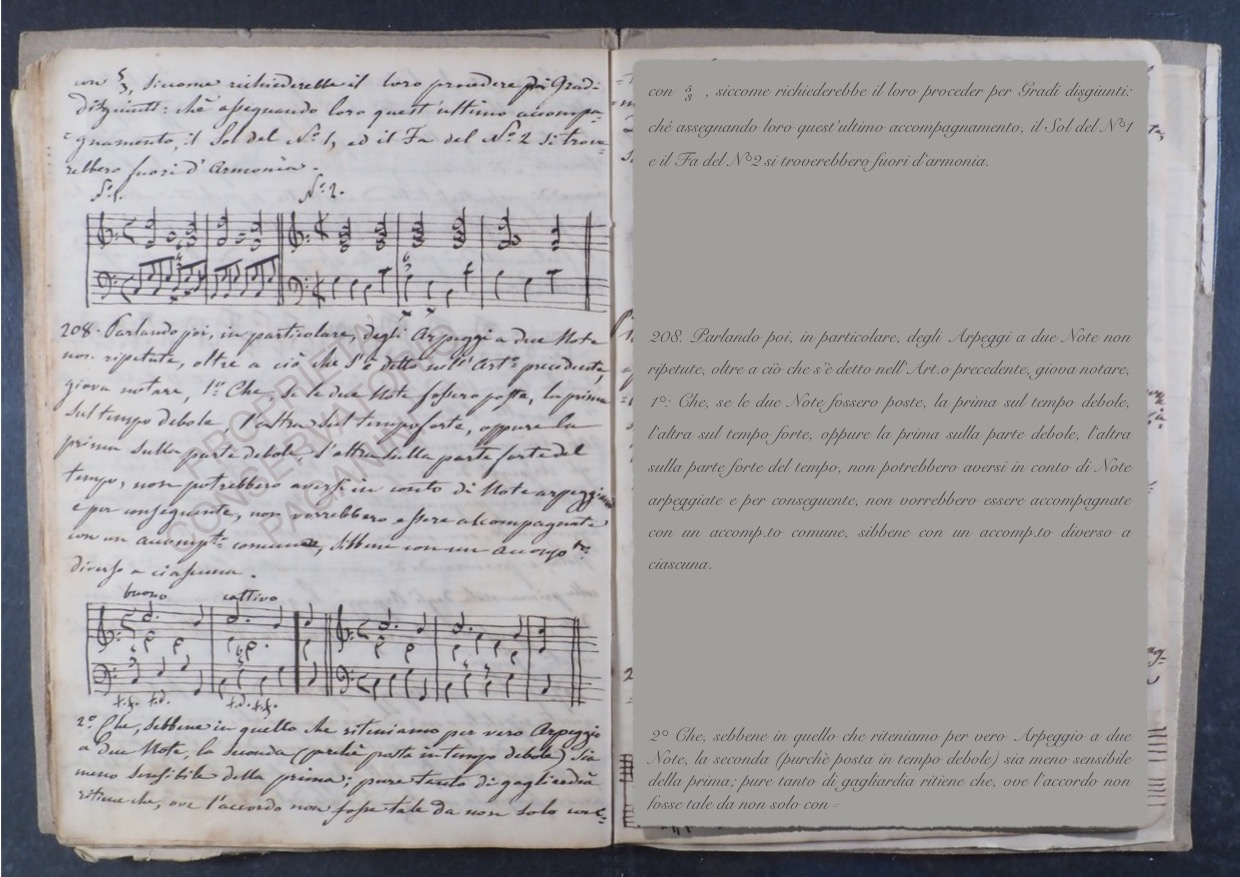 con 5/3, siccome richiederebbe il loro procedere per Gradi
disgiunti: chè assegnando loro quest'ultimo accompa=
=gnamento, il Sol del Nº. 1, ed il Fa del Nº. 2 si trove=
rebbero fuori d'Armonia.
Nº: 1. Nº: 2.
208. Parlando poi, in particolare, degli Arpeggi a due Note
non ripetute, oltre a ciò che s'è detto nell'Artº. precedente,
giova notare, 1º: Che, se le due Note fossero poste, la prima
sul tempo debole l'altra sul tempo forte, oppure la
prima sulla parte debole l'altra sulla parte forte del
tempo, non potrebbero aversi in conto di Note arpeggiate
e per conseguente, non vorrebbero essere accompagnate
con un accompto. comune, sibbene con un accompto.
diverso a ciascuna.
buono cattivo
t.f. t.d. t.d. t.f.
2º Che, sebbene in quello che riteniamo per vero Arpeggio
a due Note, la seconda (perchè posta in tempo debole) sia
meno sensibile della prima; pure tanto di gagliardia
ritiene che, ove l'accordo non fosse tale da non solo con=
con 5/3 , siccome richiederebbe il loro proceder per Gradi disgiunti:
ché assegnando loro quest'ultimo accompagnamento, il Sol del Nº1
e il Fa del Nº2 si troverebbero fuori d'armonia.
208. Parlando poi, in particolare, degli Arpeggi a due Note non
ripetute, oltre a ciò che s'è detto nell'Art.o precedente, giova notare,
1º: Che, se le due Note fossero poste, la prima sul tempo debole,
l'altra sul tempo forte, oppure la prima sulla parte debole, l'altra
sulla parte forte del tempo, non potrebbero aversi in conto di Note
arpeggiate e per conseguente, non vorrebbero essere accompagnate
con un accomp.to comune, sibbene con un accomp.to diverso a
ciascuna.
2º Che, sebbene in quello che riteniamo per vero Arpeggio a due
Note, la seconda (purchè posta in tempo debole) sia meno sensibile
della prima; pure tanto di gagliardia ritiene che, ove l'accordo non
fosse tale da non solo con=
PROPRIETÀ
CONSERVATORIO
PAGANINI